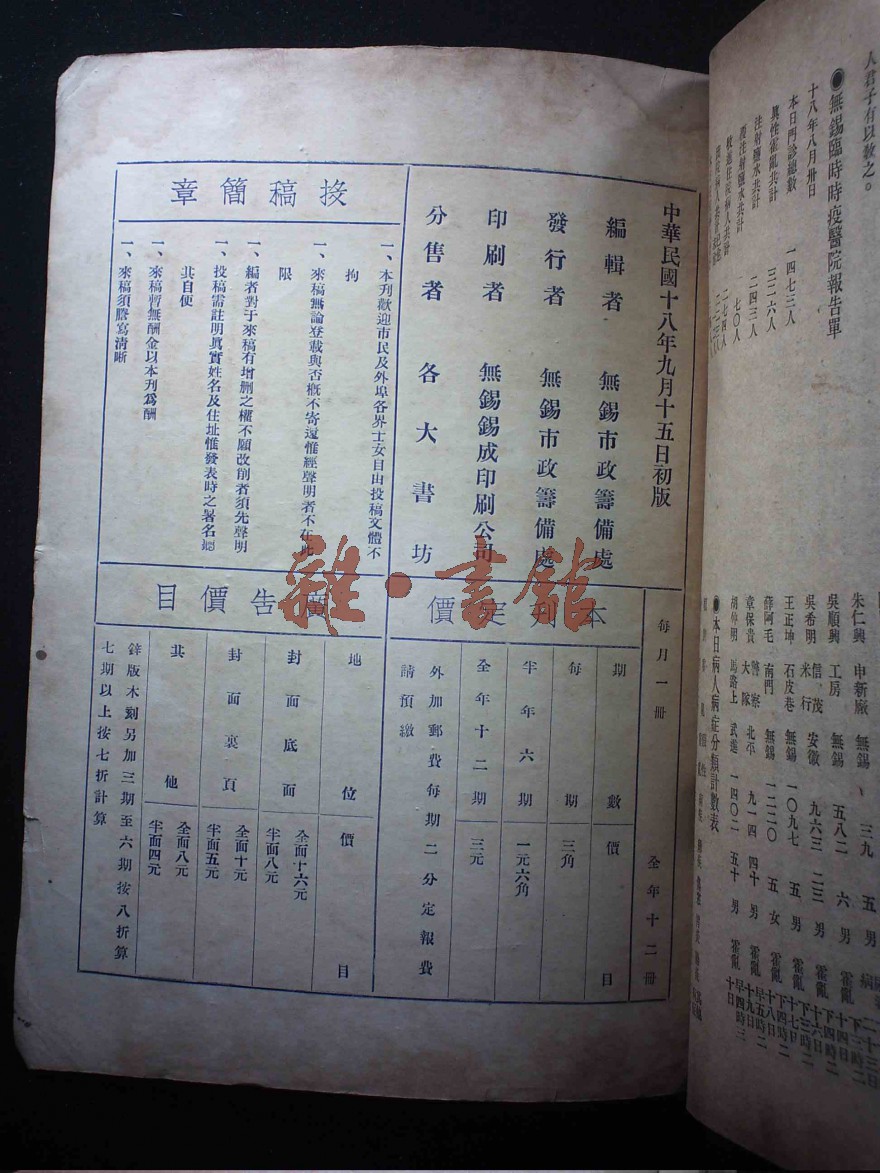 人君子有以教之。
◉無錫臨時時疫醫院報告單
十八年八月卅日
本日門診總數 一四七三人
異性霍亂共計 三二六人
注射鹽水共計 二四三人
七〇人
二七四人
朱仁興 申新廠 無錫 三九 五 男
吳順興 工房 無錫 五八二 六 男 霍亂
吳希明 米行 信茂 安徽 九六三 二三 男 霍亂
王正坤 石皮巷 無錫 一〇九七 五 男 霍亂
薛阿毛 南門 無錫 一二二〇 五 女 霍亂
章保貴 警察大隊 北平 九一四 四十 男 霍亂
胡仲明 馬路上 武進 一四〇二 五十 男 霍亂
◉本日病人病症分類計數表
中華民國十八年九月十五日初版
編輯者 無錫市政籌備處
發行者 無錫市政籌備處
印刷者 無錫錫成印刷公司
分售者 各大書坊
投稿簡章
一、本刊歡迎市民及外埠各界士女自由投稿文體不
拘
一、來稿無論登載與否概不寄還惟經聲明者不在此
限
一、編者對于來稿有增删之權不願改削者須先聲明
一、投稿需註明眞實姓名及住址惟發表時之署名聽
其自便
一、來稿暫無酬金以本刊爲酬
一、來稿須謄寫清晰
本刊定價
每月一冊 全年十二冊
期數 價目
每期 三角
半年六期 一元六角
全年十二期 三元
外加郵費每期二分定報費
請預繳
廣告價目
地位 價目
封面底面 全面十六元
半面八元
封面裏頁 全面十元
半面五元
其他 全面八元
半面四元
鋅版木刻另加三期至六期按八折算
七期以上按七折計算
雜·書館